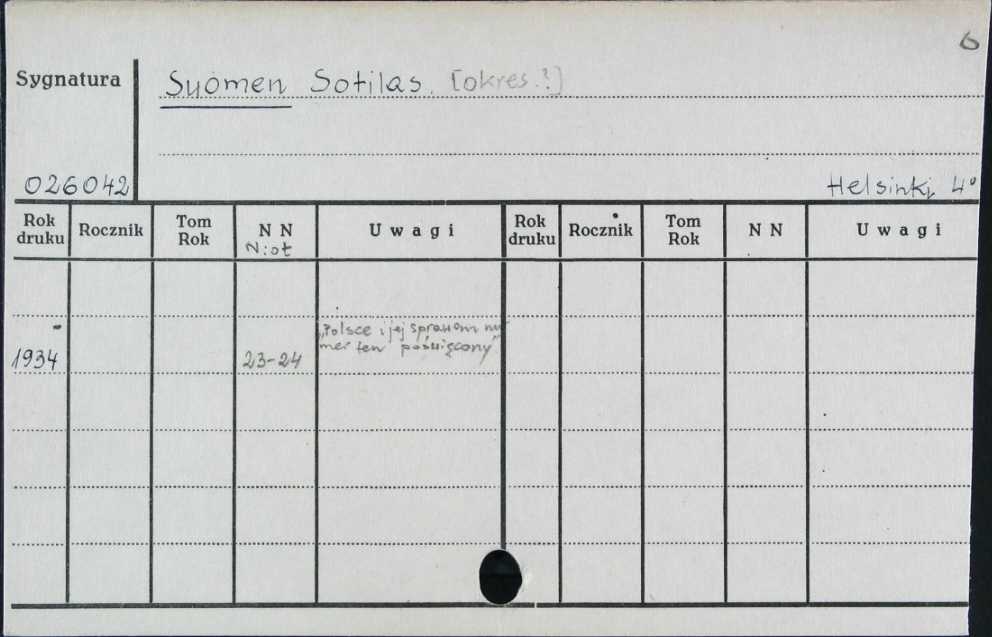 6
Sygnatura
Suomen Sotilas. [okres.?]
026042
Helsinki, 4°
Rok druku Rocznik Tom Rok N N Uwagi Rok druku Rocznik Tom Rok N N Uwagi
N:ot
"Polsce i jej sprawom nu
1934 23-24 mer ten poświęcony"